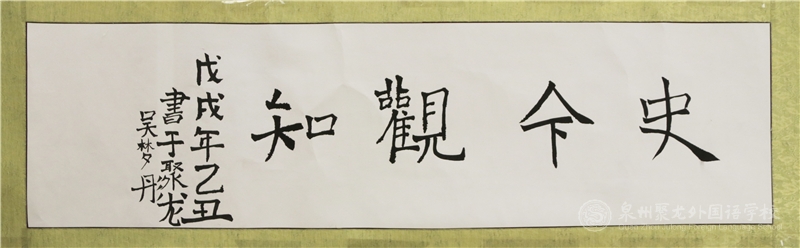 史今觀知
戊戌年乙丑
書于聚龙
吴梦丹
泉州聚龙外国语学校